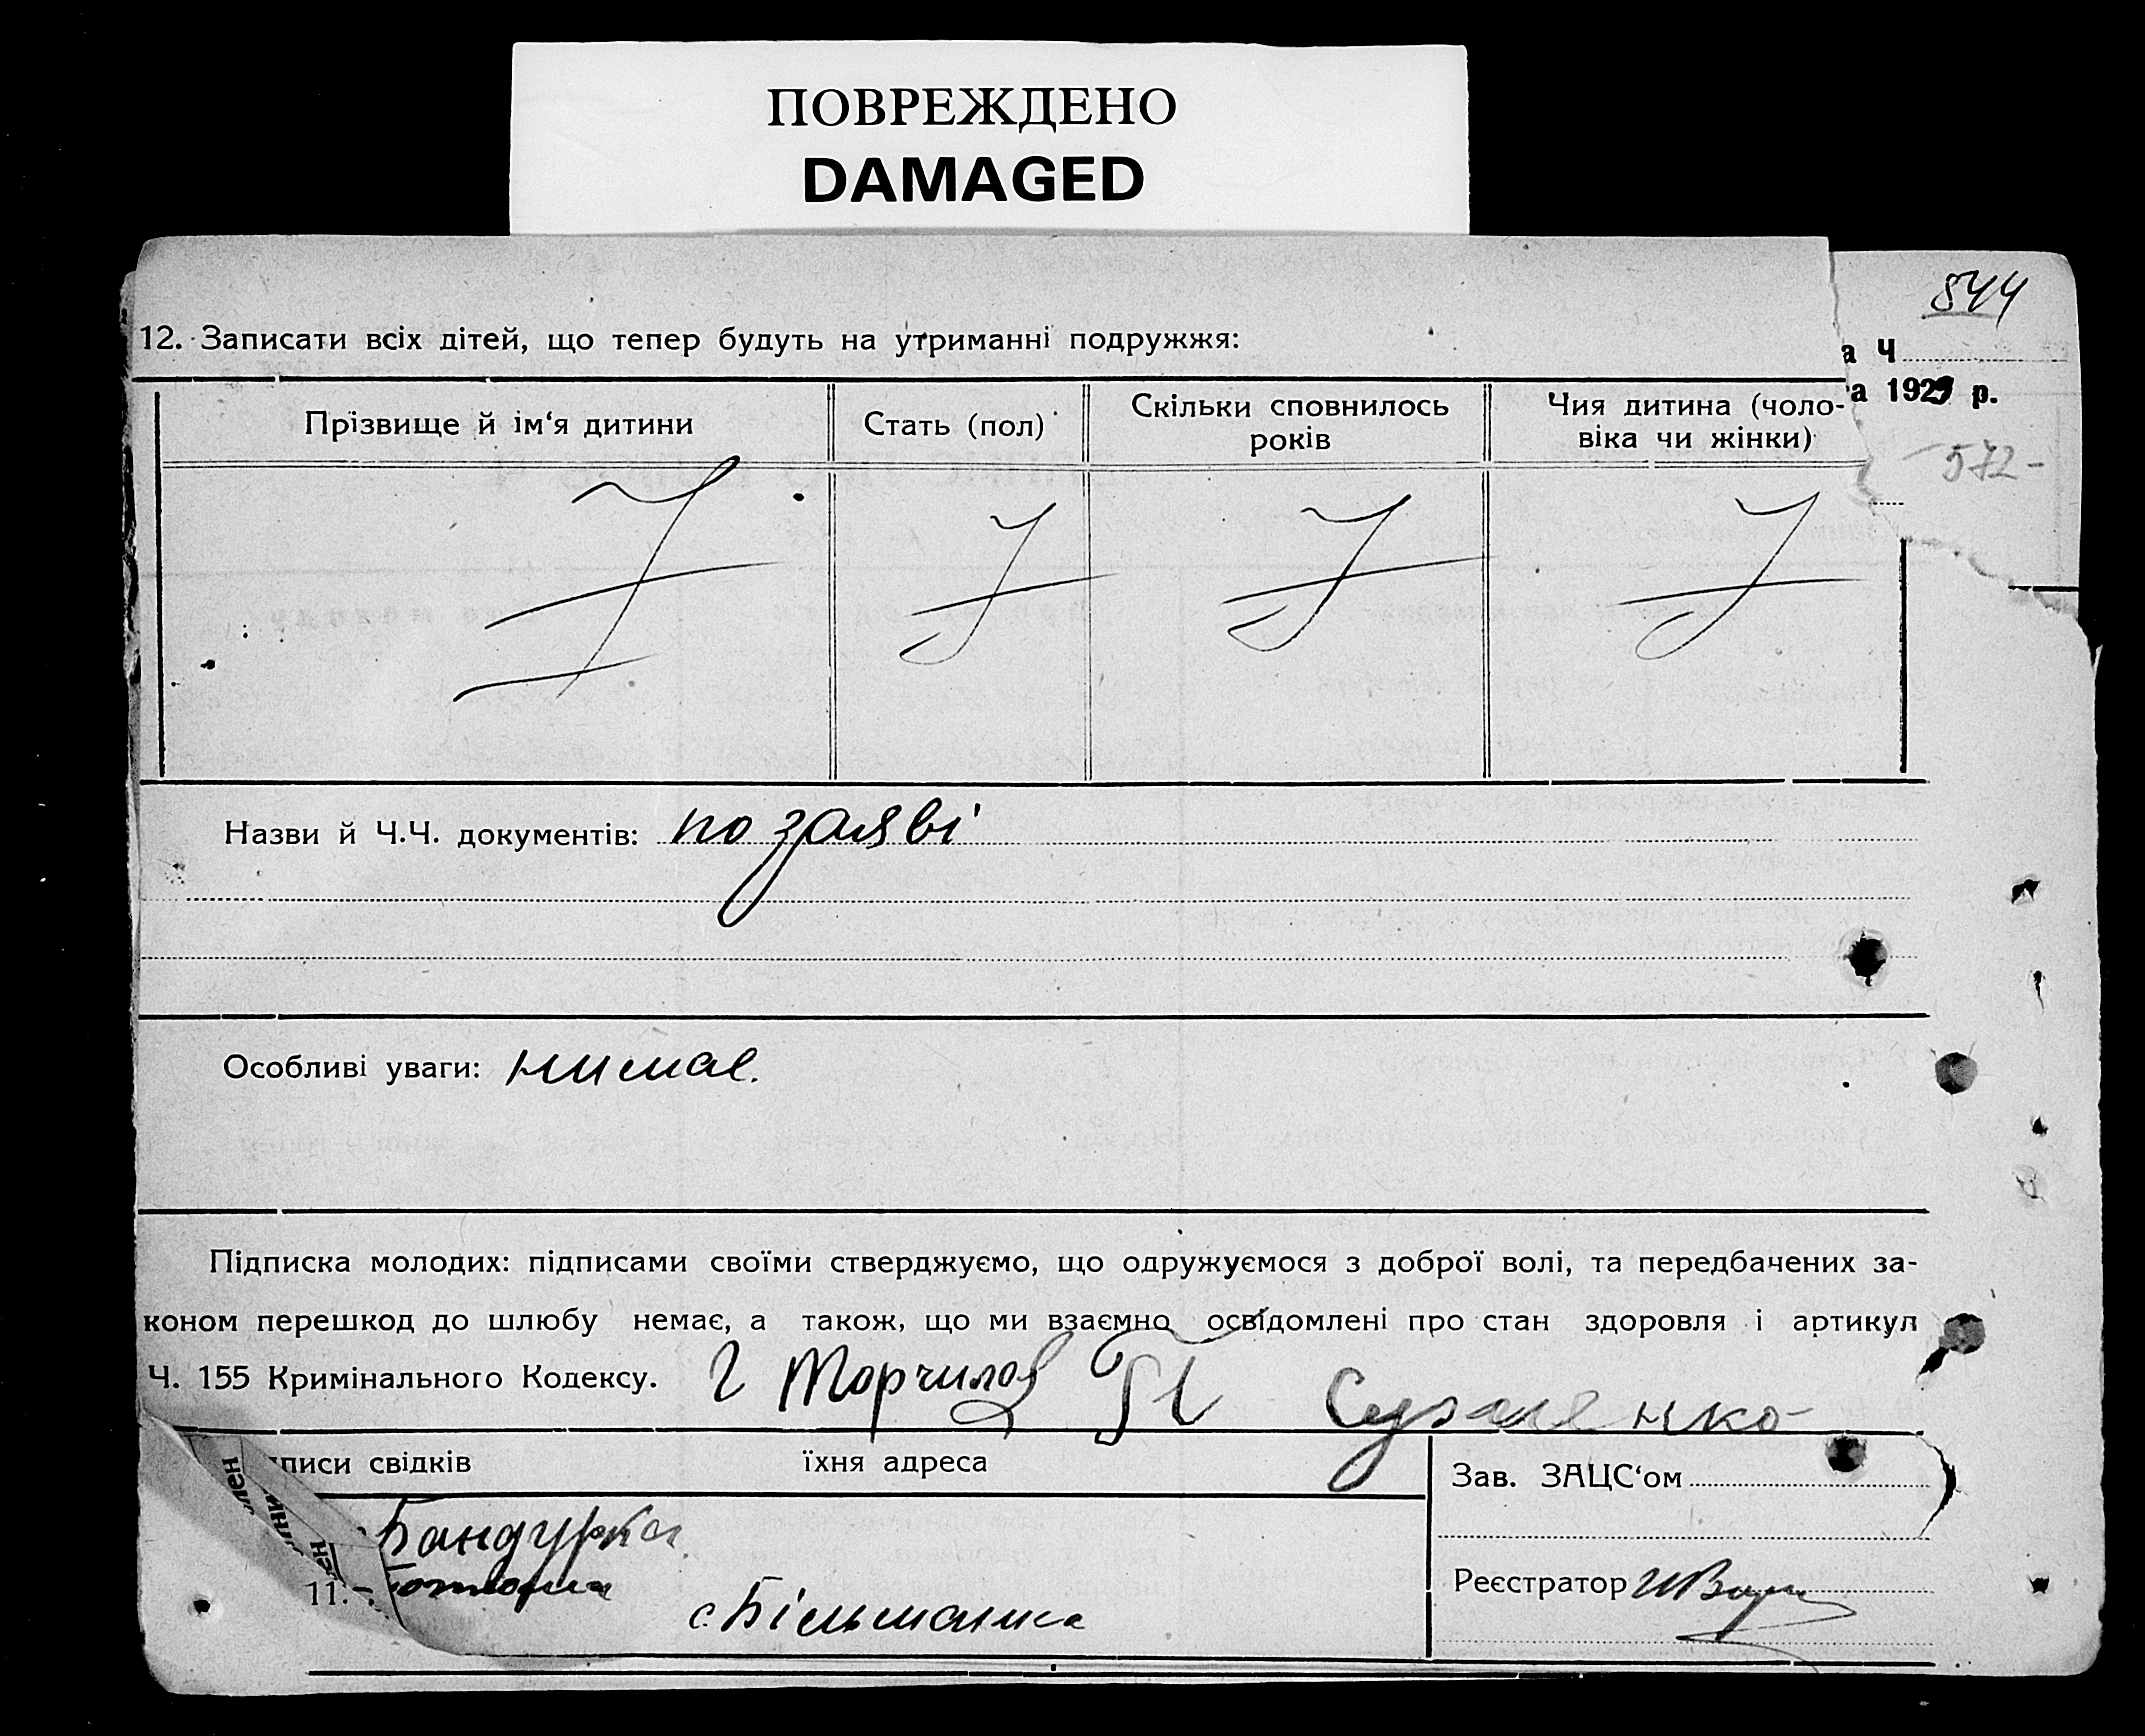 ПОВРЕЖДЕНО
DAMAGED
844
12. Записати всіх дітей, що тепер будуть на утриманні подружжя:
а Ч
а 1929 р.
Прізвище й ім‘я дитини
Стать (пол)
Скільки сповнилось
років
Чия дитина (чоло-
віка чи жінки)
572-
Назви й Ч.Ч. документів: по заяві
Особливі уваги: нимае.
Підписка молодих: підписами своїми стверджуємо, що одружуємося з доброї волі, та передбачених за-
коном перешкод до шлюбу немає, а також, що ми взаємно освідомлені про стан здоровля і артикул
Ч. 155 Кримінального Кодексу. Г Торчилов
писи свідків
їхня адреса
Зав. ЗАЦС‘ом
Бандурка
11.
с. Більманка
Реєстратор